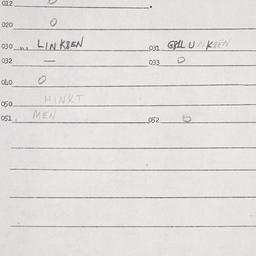 012
020 0
030 LINKBEN 031
032 — 033 0
040 0
050 HINKT
051 MEN 052 0